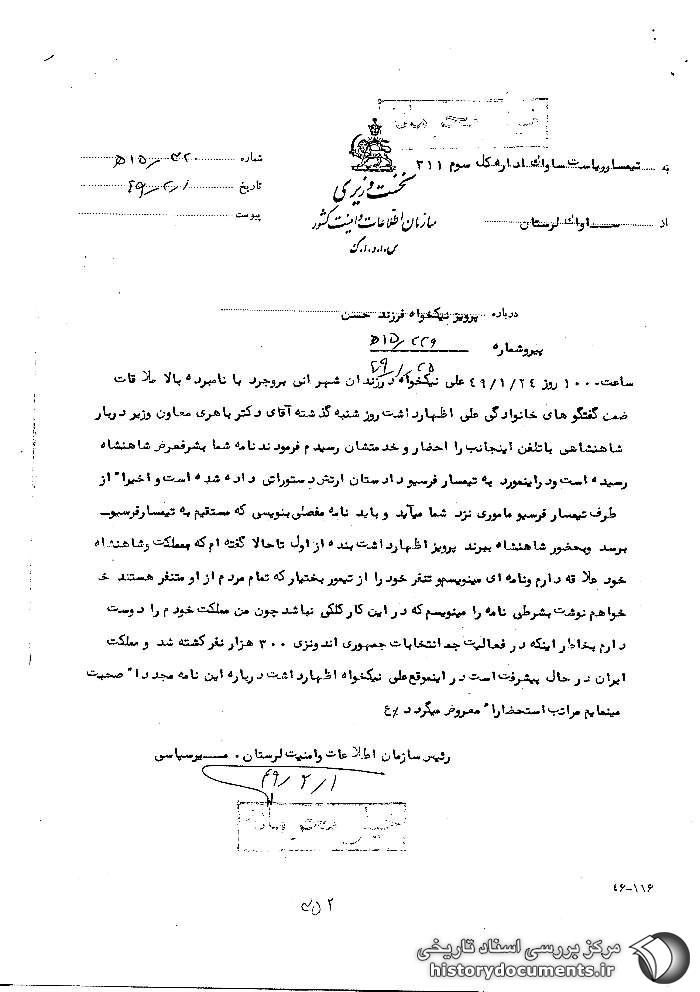 خیلی محرمانه
به تیمسار ریاست ساواک اداره کل سوم ۳۱۱
شماره ۵۱۵/۴۲۰
نخست وزیری
تاریخ ۴۹/۲/۱
از ساواک لرستان
سازمان اطلاعات و امنیت کشور
پیوست
س.ا.و.ا.ک
درباره پرویز نیکخواه فرزند حسن
پیرو شماره ۵۱۵/۲۲۹
ساعت ۱۰۰۰ روز ۴۹/۱/۲۴ علی نیکخواه در زندان شهربانی بروجرد با نامبرده بالا ملاقات
ضمن گفتگو های خانوادگی علی اظهارداشت روز شنبه گذشته آقای دکتر باهری معاون وزیر دربار
شاهنشاهی با تلفن اینجانب را احضار و خدمتشان رسیدم فرمودند نامه شما بشرفعرض شاهنشاه
رسیده است ودراینمورد به تیمسار فرسیو دادستان ارتش دستوراتی داده شده است و اخیرا" از
طرف تیمسار فرسیو ماموری نزد شما میآید و باید نامه مفصلی بنویسی که مستقیم به تیمسارفرسیو
برسد وبحضور شاهنشاه ببرند پرویز اظهارداشت بنده از اول تاحالا گفته ام که بمملکت وشاهنشاه
خود علاقه دارم ونامه ای مینویسم و تنفر خود را از تیمور بختیار که تمام مردم از او متنفر هستند خ
خواهم نوشت بشرطی نامه را مینویسم که در این کار کلکی نباشد چون من مملکت خودم را دوست
دارم بخاطر اینکه در فعالیت جمع انتخابات جمهوری اندونزی ۳۰۰ هزار نفر کشته شد و مملکت
ایران در حال پیشرفت است در اینموقع علی نیکخواه اظهارداشت درباره این نامه مجددا" صحبت
مینمایم مراتب استحضارا" معروض میگردد ع
رئیس سازمان اطلاعات وامنیت لرستان. میرسپاسی
۴۹/۲/۱
خیلی محرمانه
۴۶-۱۱۶
۴۵۲
مرکز بررسی اسناد تاریخی
historydocuments.ir